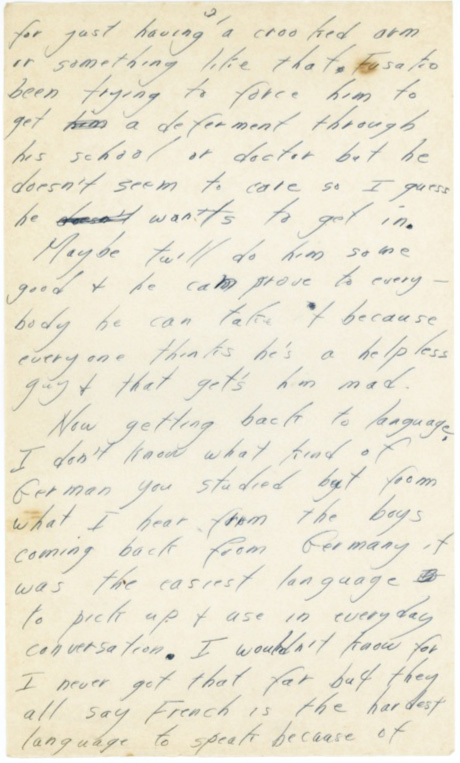 2
for just having a crooked arm
or something like that. Fusako
been trying to force him to
get him a deferment through
his school or doctor but he
doesn't seem to care so I guess
he doesn't want's to get in.
Maybe twill do him some
good & he can prove to every-
body he can take it because
everyone thinks he's a helpless
guy & that get's him mad.
Now getting back to language,
I don't know what kind of
German you studied but from
what I hear from the boys
coming back from Germany it
was the easiest language
to pick up & use in everyday
conversation. I wouldn't know for
I never got that far but they
all say French is the hardest
language to speak because of